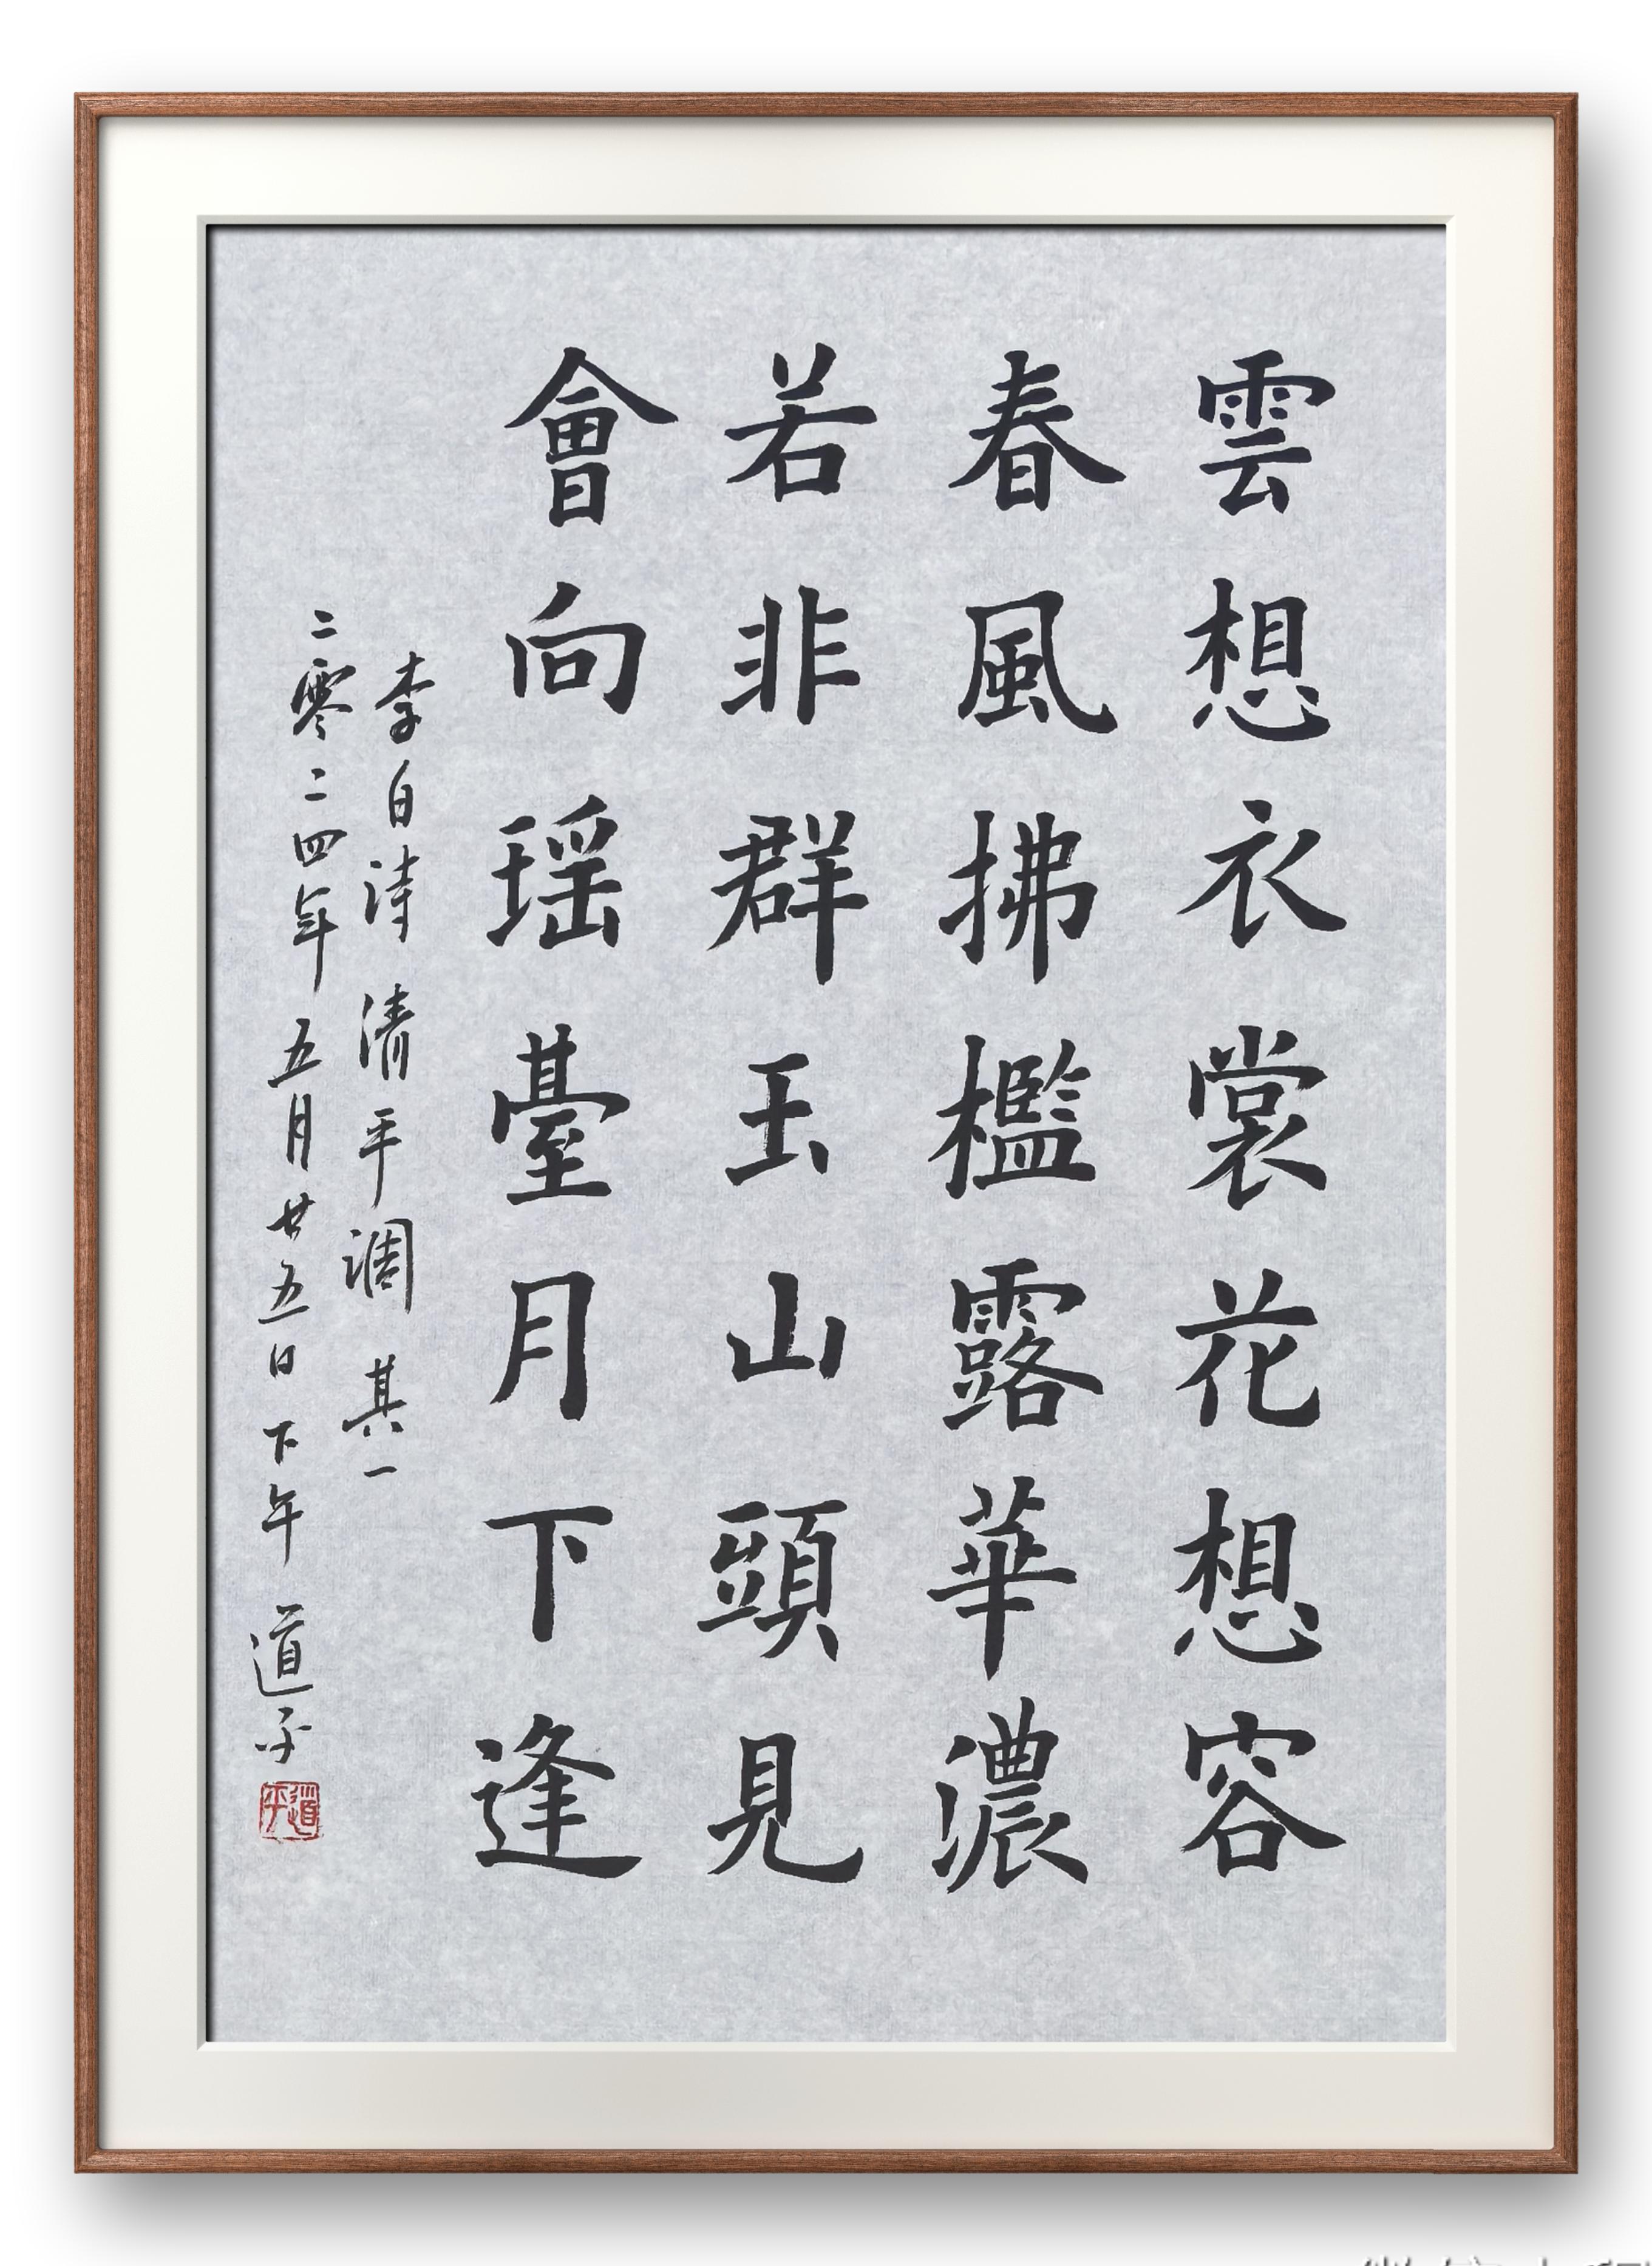 雲想衣裳花想容
春風拂檻露華濃
若非群玉山頭見
會向瑶臺月下逢
李白诗 清平调 其一
二零二四年五月廿五日下午 道平
道平